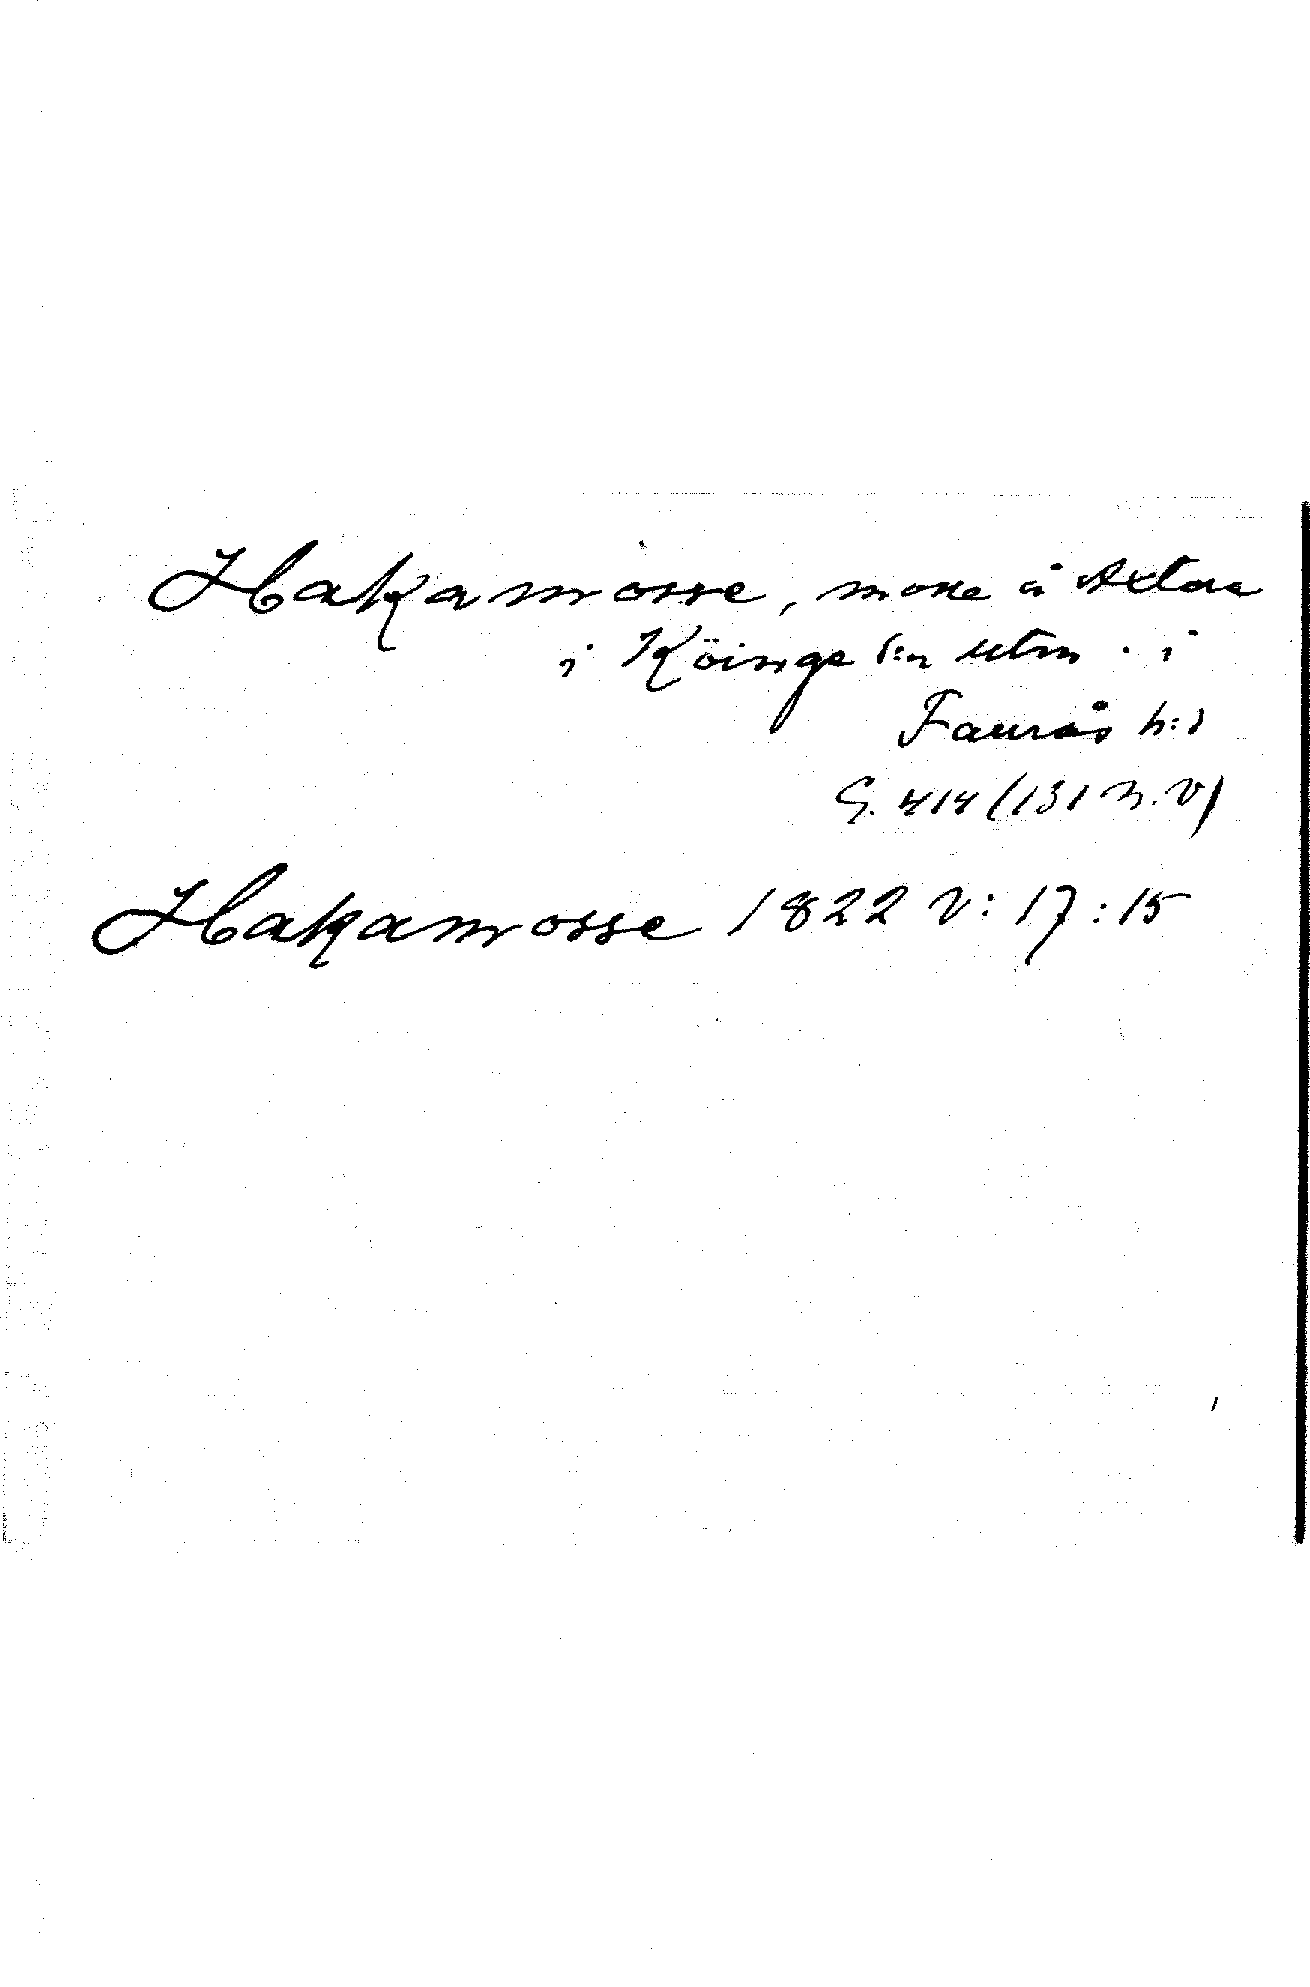 Hakamosse, mosse å Axtor
i Köinge s:n utm. i
Faurås h:d
G. 414 (131 n. v)
Hakamosse 1822 V: 17: 15